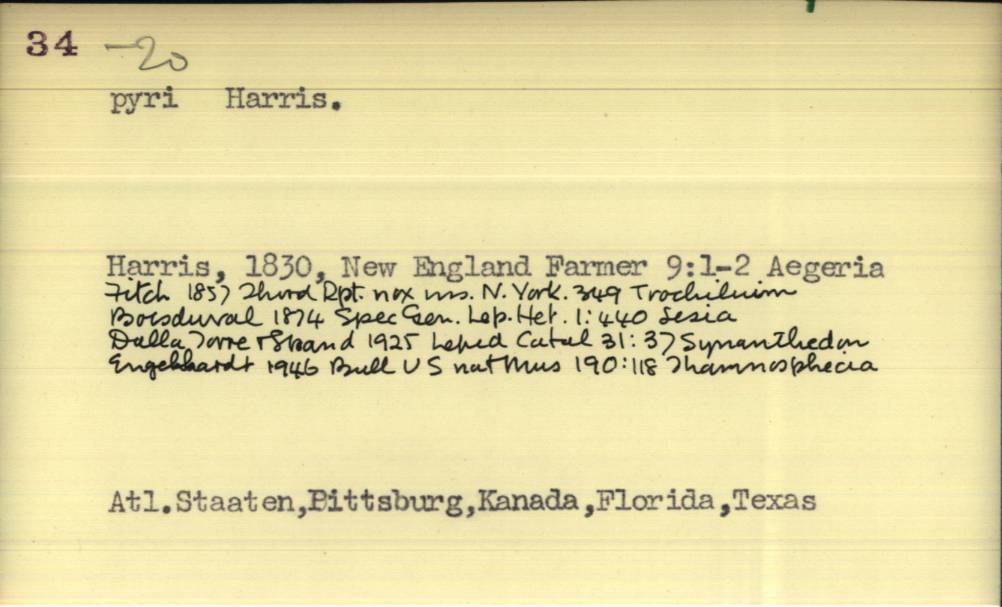 34 -20
pyri Harris.
Harris, 1830, New England Farmer 9:1-2 Aegeria
Fitch 1857 Third Rpt. nox ins. N. York. 349 Trochiluim
Boisduval 1874 Spec Gen. Lep. Het. 1:440 Sesia
Dalla Torre & Strand 1925 Lepid Catal 31:37 Synanthedon
Engelhardt 1946 Bull U S nat Mus 190:118 Thamnosphecia
Atl.Staaten,Pittsburg,Kanada,Florida,Texas